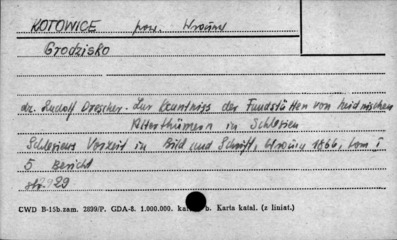 KOTOWICE pow. Wrocław
Grodzisko
dr. Rudolf Drescher. Zur Kenntniss der Fundstätten von heidnischen
Alterthümern in Schlesien
Schlesiens Vorzeit in Bild und Schrift, 1866, tom I
5 Bericht
str. 29
CWD B-15b.zam. 2899/P. GDA-8. 1.000.000. b. Karta katal. (z liniat.)